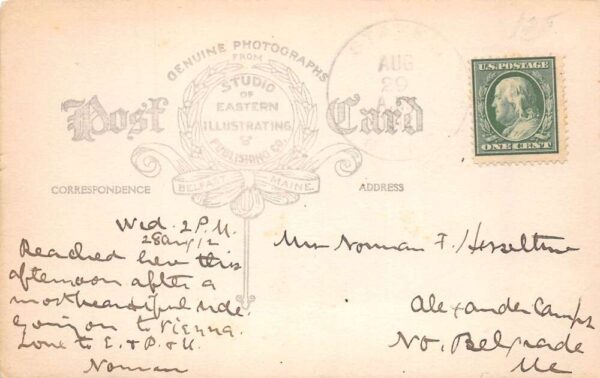 GENUINE PHOTOGRAPHS
FROM
STUDIO
OF
EASTERN
ILLUSTRATING
&
PUBLISHING CO.
BELFAST MAINE.
Post Card
CORRESPONDENCE
ADDRESS
AUG
29
U.S. POSTAGE
ONE CENT
Wed. 2 P.M.
28 Aug/12
Reached here this
afternoon after a
most beautiful ride.
Going on to Vienna.
Love to E. & P. & U.
Norman
Mrs Norman F. Hesseltine
Alexander Camps
No. Belgrade
Me